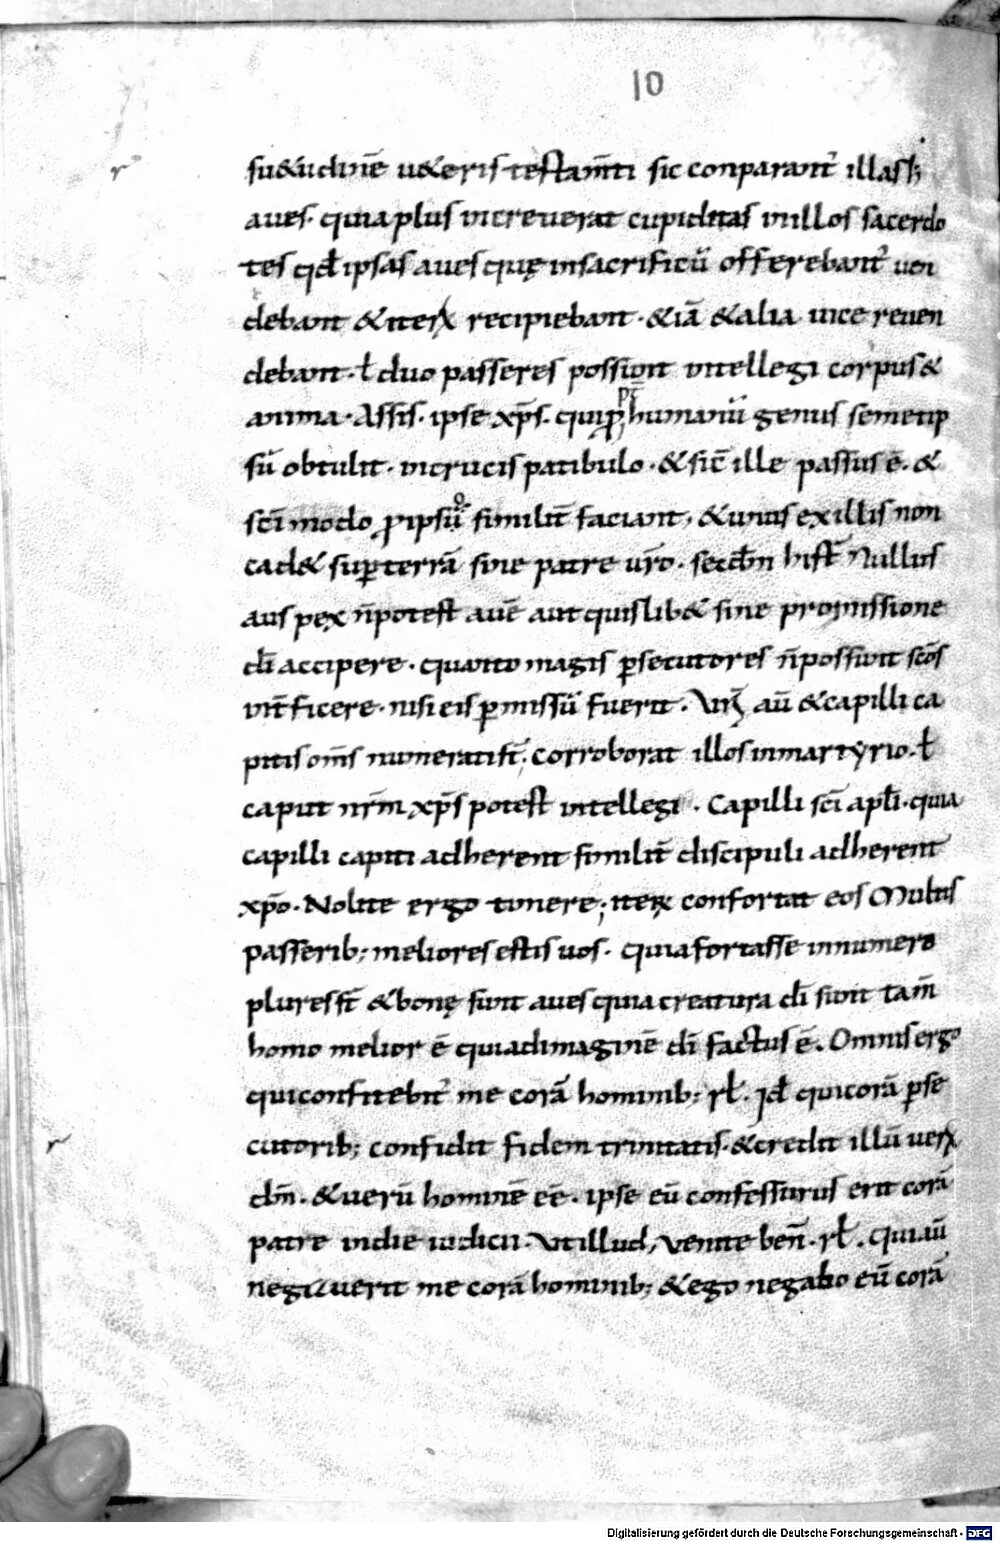 10
su&udinē u&eris testam̄ti sic conparant᷑ illas h;
aues. quia plus increuerat cupiditas in illos sacerdo
tes qđ ipsas aues quę in sacrificiū offerebant᷑ uen
debant & iterꝝ recipiebant. & iā & alia uice reuen
debant. ł duo passeres possunt intellegi corpus &
anima. Assis. ipse xp̄s. qui ꝓ humanū genus semetip
sū obtulit. in crucis patibulo. & sic̄ ille passus ē. &
sc̄i modo ꝓ ipsū similit̄ faciant, & unus ex illis non
cad& suꝑ terrā sine patre ur̄o. secd̄m hist̄ Nullus
auspex n̄ potest auē aut quislib& sine promissione
dī accipere. quanto magis ꝑsecutores n̄ possunt sc̄os
int̄ficere. nisi eis ꝑmissū fuerit. Ur̄i aū & capilli ca
pitis om̄s numerati st̄. Corroborat illos in martyrio. ł
caput nr̄m xp̄s potest intellegi. Capilli sc̄i apłi. quia
capilli capiti adherent similit̄ discipuli adherent
xp̄o. Nolite ergo timere; iterꝝ confortat eos Multis
passerib; meliores estis uos. Quia fortasse in numero
plures st̄ & bonę sunt aues quia creatura dī sunt tam̄
homo melior ē quia ad imaginē dī factus ē. Omnis ergo
qui confitebit᷑ me corā hominib; rł. Id qui corā ꝑse
cutorib; confidit fidem trinitatis. & credit illū uerꝝ
dm̄. & uerū hominē eē. ipse eū confessurus erit corā
patre in die iudicii. Ut illud, Venite ben̄. rł. Qui aū
negauerit me corā hominib; & ego negabo eū corā
Digitalisierung gefördert durch die Deutsche Forschungsgemeinschaft - DFG